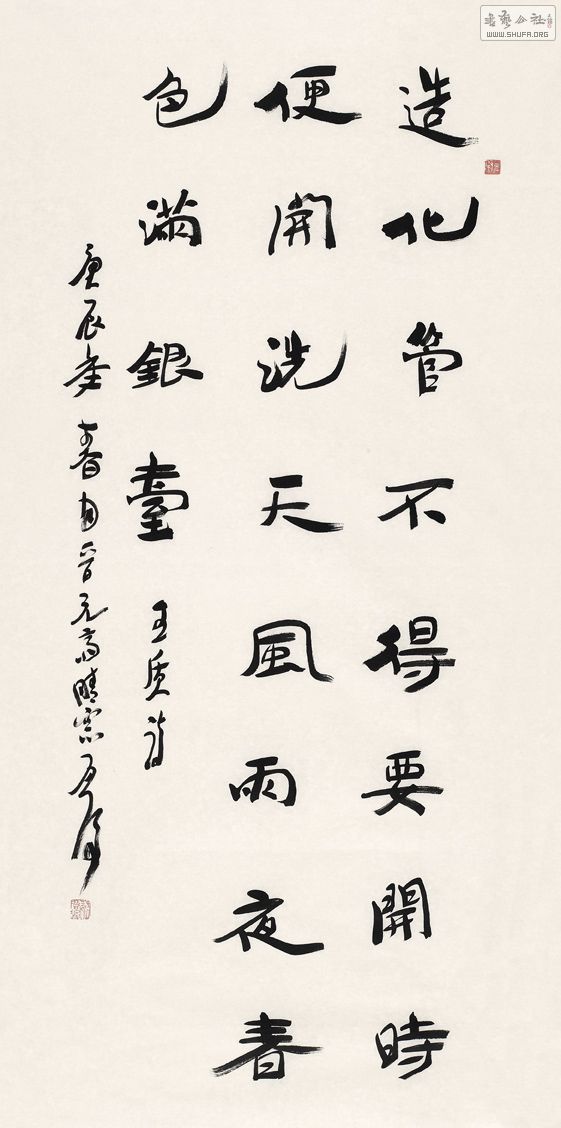 造化管不得要開時
便開洗天風雨夜春
色滿銀臺
王質詩
庚辰年春
書法公社
WWW.SHUFA.ORG